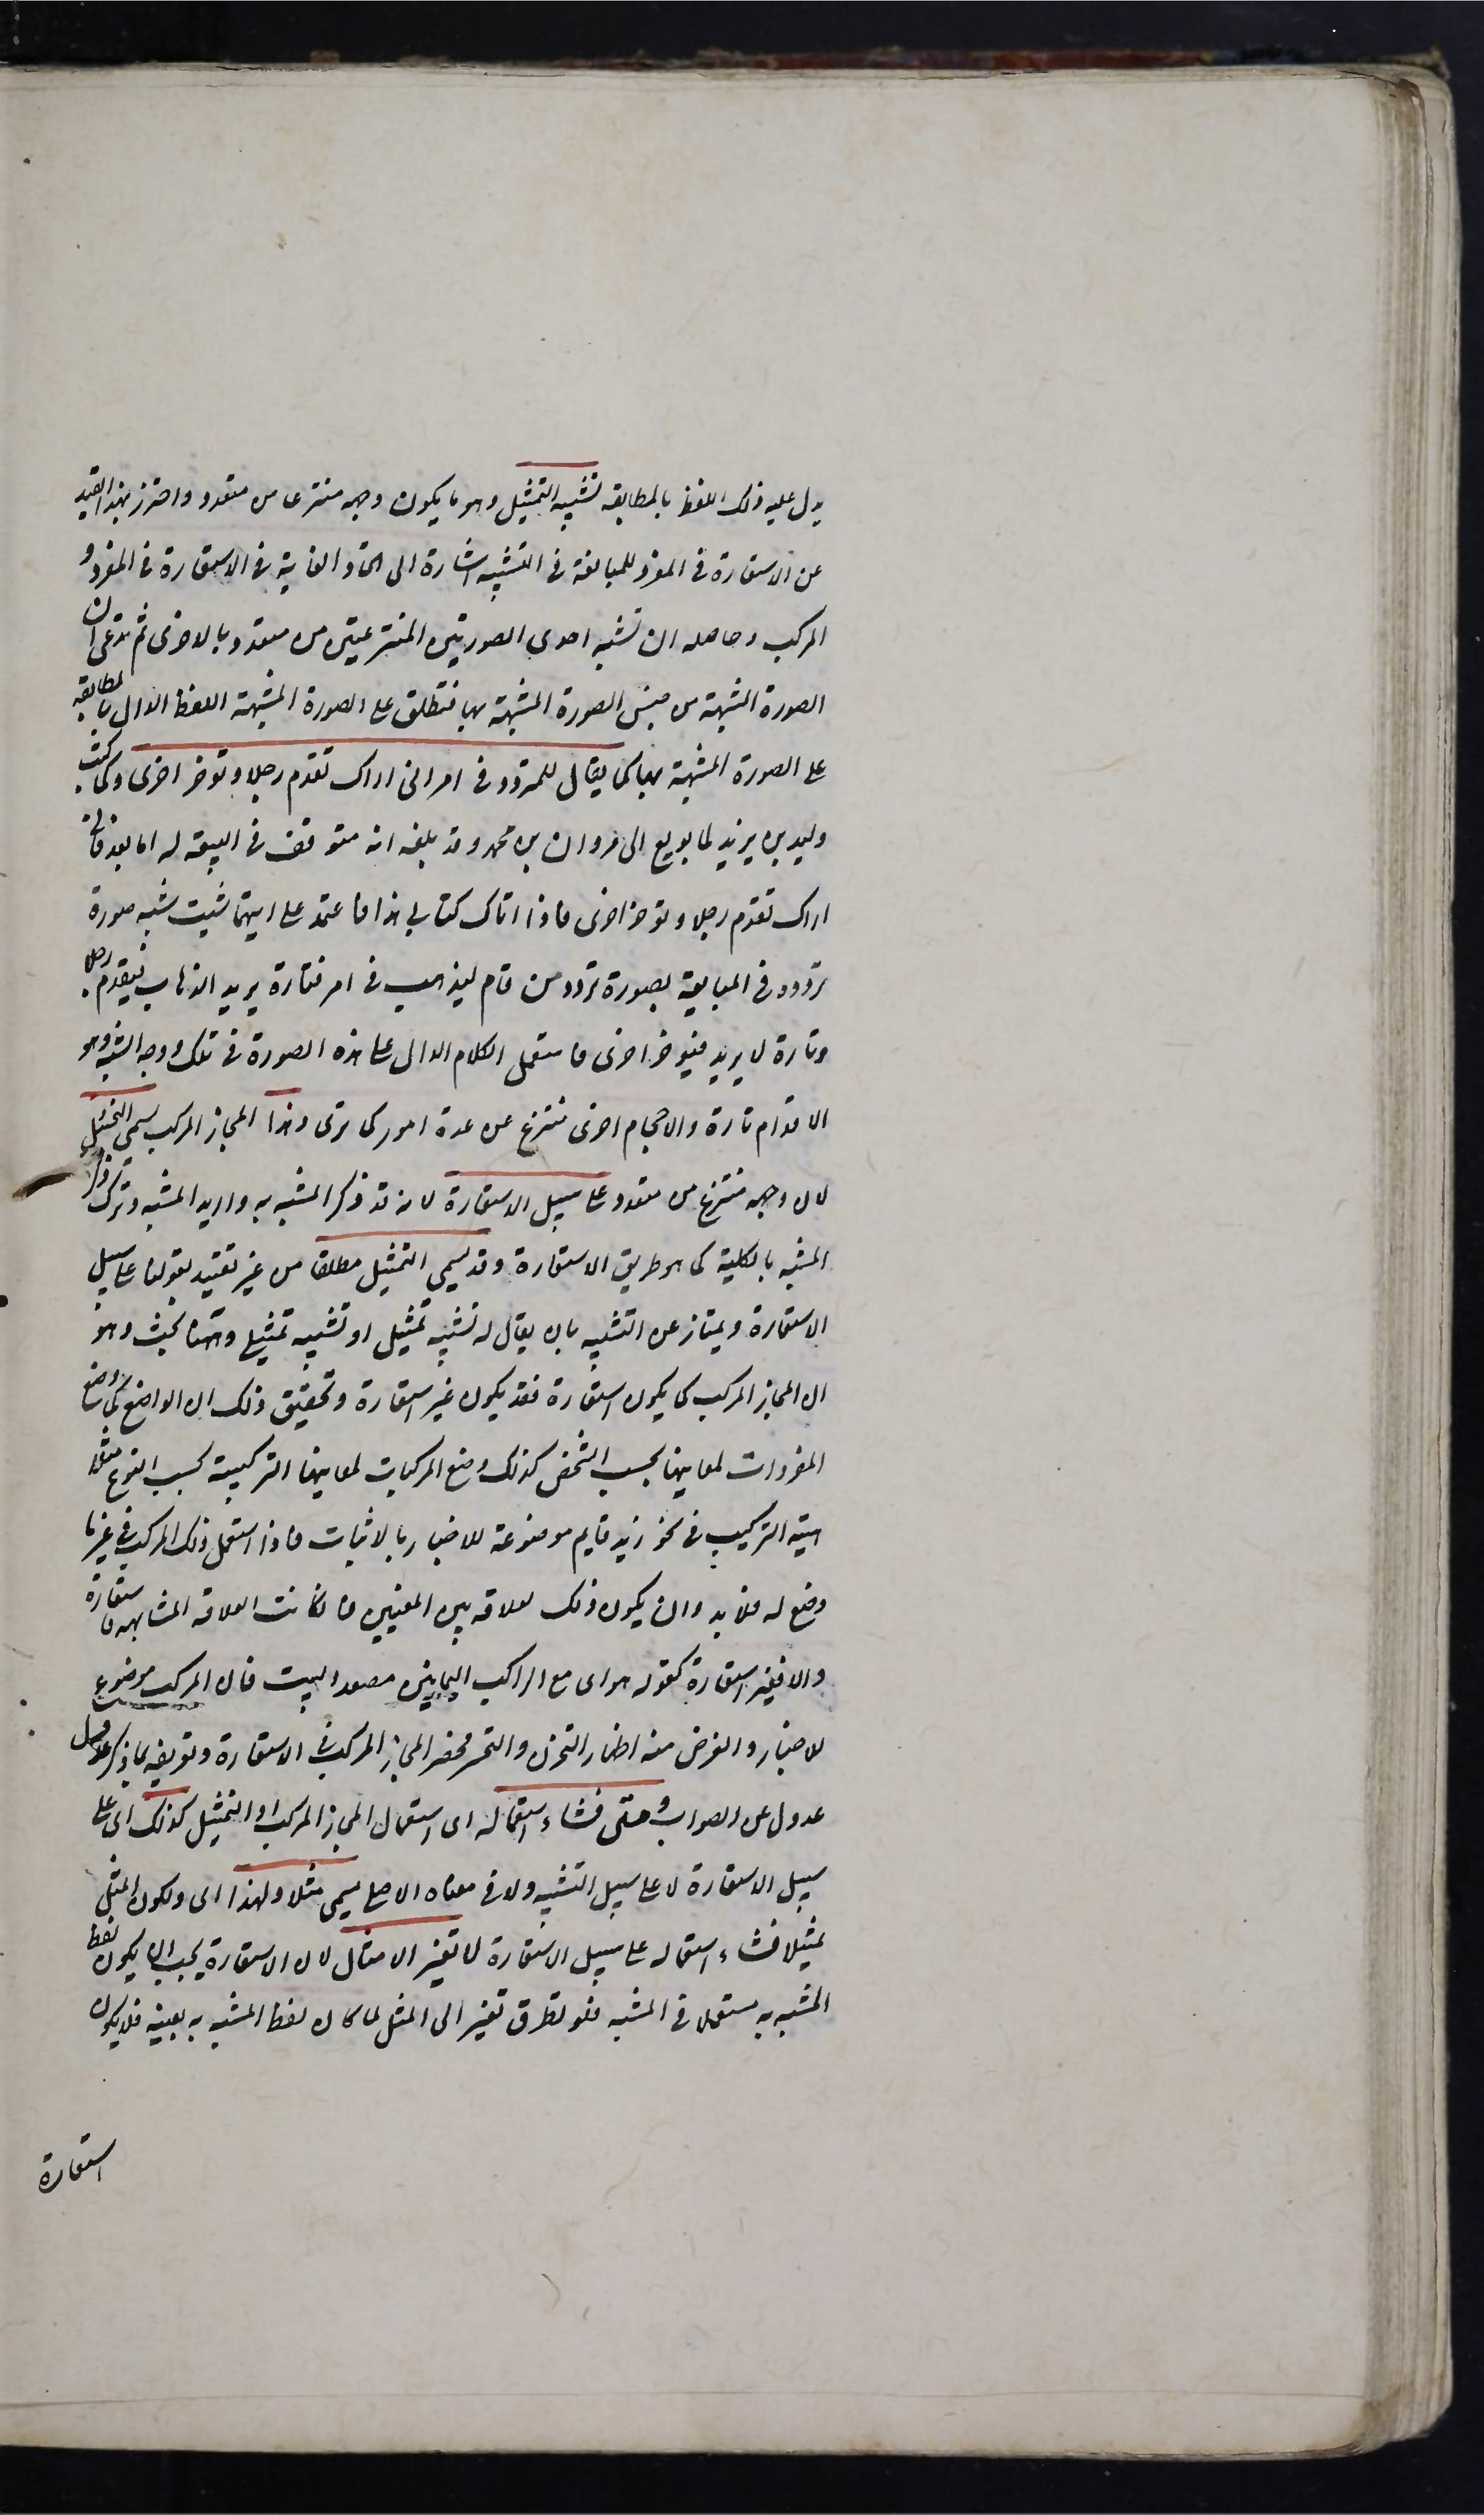 يدل عليه ذلك اللفظ بالمطابقة تشبيه التمثيل وهو ما يكون وجهه منتزعا من متعدد واحترز بهذا القيد
عن الاستعارة في المفرد للمبالغة في التشبيه اشارة الى اتحاد الغاية في الاستعارة في المفرد و
المركب وحاصله ان تشبه احدى الصورتين المنتزعتين من متعدد بالاخرى ثم تدعى ان
الصورة المشبهة من جنس الصورة المشبهة بها فتطلق على الصورة المشبهة اللفظ الدال بالمطابقة
على الصورة المشبهة بها كما يقال للمتردد في امر اني اراك تقدم رجلا وتوخر اخرى وكما كتب
وليد بن يزيد لما بويع الى مروان بن محمد وقد بلغه انه متوقف في البيعة له اما بعد فاني
اراك تقدم رجلا وتوخر اخرى فاذا اتاك كتابي هذا فاعتمد على ايتهما شيت شبه صورة
تردده في المبايعة بصورة تردد من قام ليذهب في امر فتارة يريد الذهاب فيقدم رجلا
وتارة لا يريد فيوخر اخرى فاستعمل الكلام الدال على هذه الصورة في تلك ووجه الشبه وهو
الاقدام تارة والاحجام اخرى منتزع عن عدة امور كما ترى وهذا المجاز المركب يسمى التمثيل
لان وجهه منتزع من متعدد على سبيل الاستعارة لانه قد ذكر المشبه به واريد المشبه وترك ذكر
المشبه بالكلية كما هو طريق الاستعارة وقد يسمى التمثيل مطلقا من غير تقييد بقولنا على سبيل
الاستعارة ويمتاز عن التشبيه بان يقال له تشبيه تمثيل او تشبيه تمثيلي وههنا بحث وهو
ان المجاز المركب كما يكون استعارة فقد يكون غير استعارة وتحقيق ذلك ان الواضع كما وضع
المفردات لمعانيها بحسب الشخص كذلك وضع المركبات لمعانيها التركيبية بحسب النوع مثلا
هيئة التركيب في نحو زيد قايم موضوعة للاخبار بالاثبات فاذا استعمل ذلك المركب في غير ما
وضع له فلا بد وان يكون ذلك لعلاقة بين المعنيين فان كانت العلاقة المشابهة فاستعارة
والا فغير استعارة كقوله هواى مع الراكب اليمانين مصعد البيت فان المركب موضوع
للاخبار والغرض منه اظهار التحزن والتحسر فحصر المجاز المركب في الاستعارة وتعريفه بما ذكر
عدول عن الصواب ومتى فشاء استعماله اى استعمال المجاز المركب او التمثيل كذلك اى على
سبيل الاستعارة لا على سبيل التشبيه ولا في معناه الاصلي يسمى مثلا ولهذا اى ولكون المثل
تمثيلا فشاء استعماله على سبيل الاستعارة لا تغير الامثال لان الاستعارة يجب ان يكون لفظ
المشبه به مستعملا في المشبه فلو تطرق تغير الى المثل لما كان لفظ المشبه به بعينه فلا يكون
استعارة